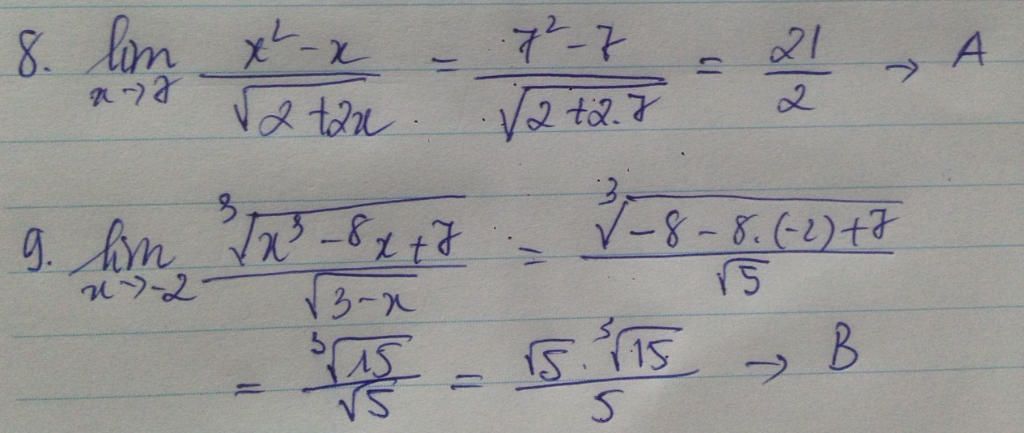 8. lim x→7 x² - x / √2 + 2x = 7² - 7 / √2 + 2.7 = 21 / 2 → A
9. lim x→-2 ³√x³ - 8x + 7 / √3 - x = ³√-8 - 8.(-2) + 7 / √5
= ³√15 / √5 = √5 . ³√15 / 5 → B